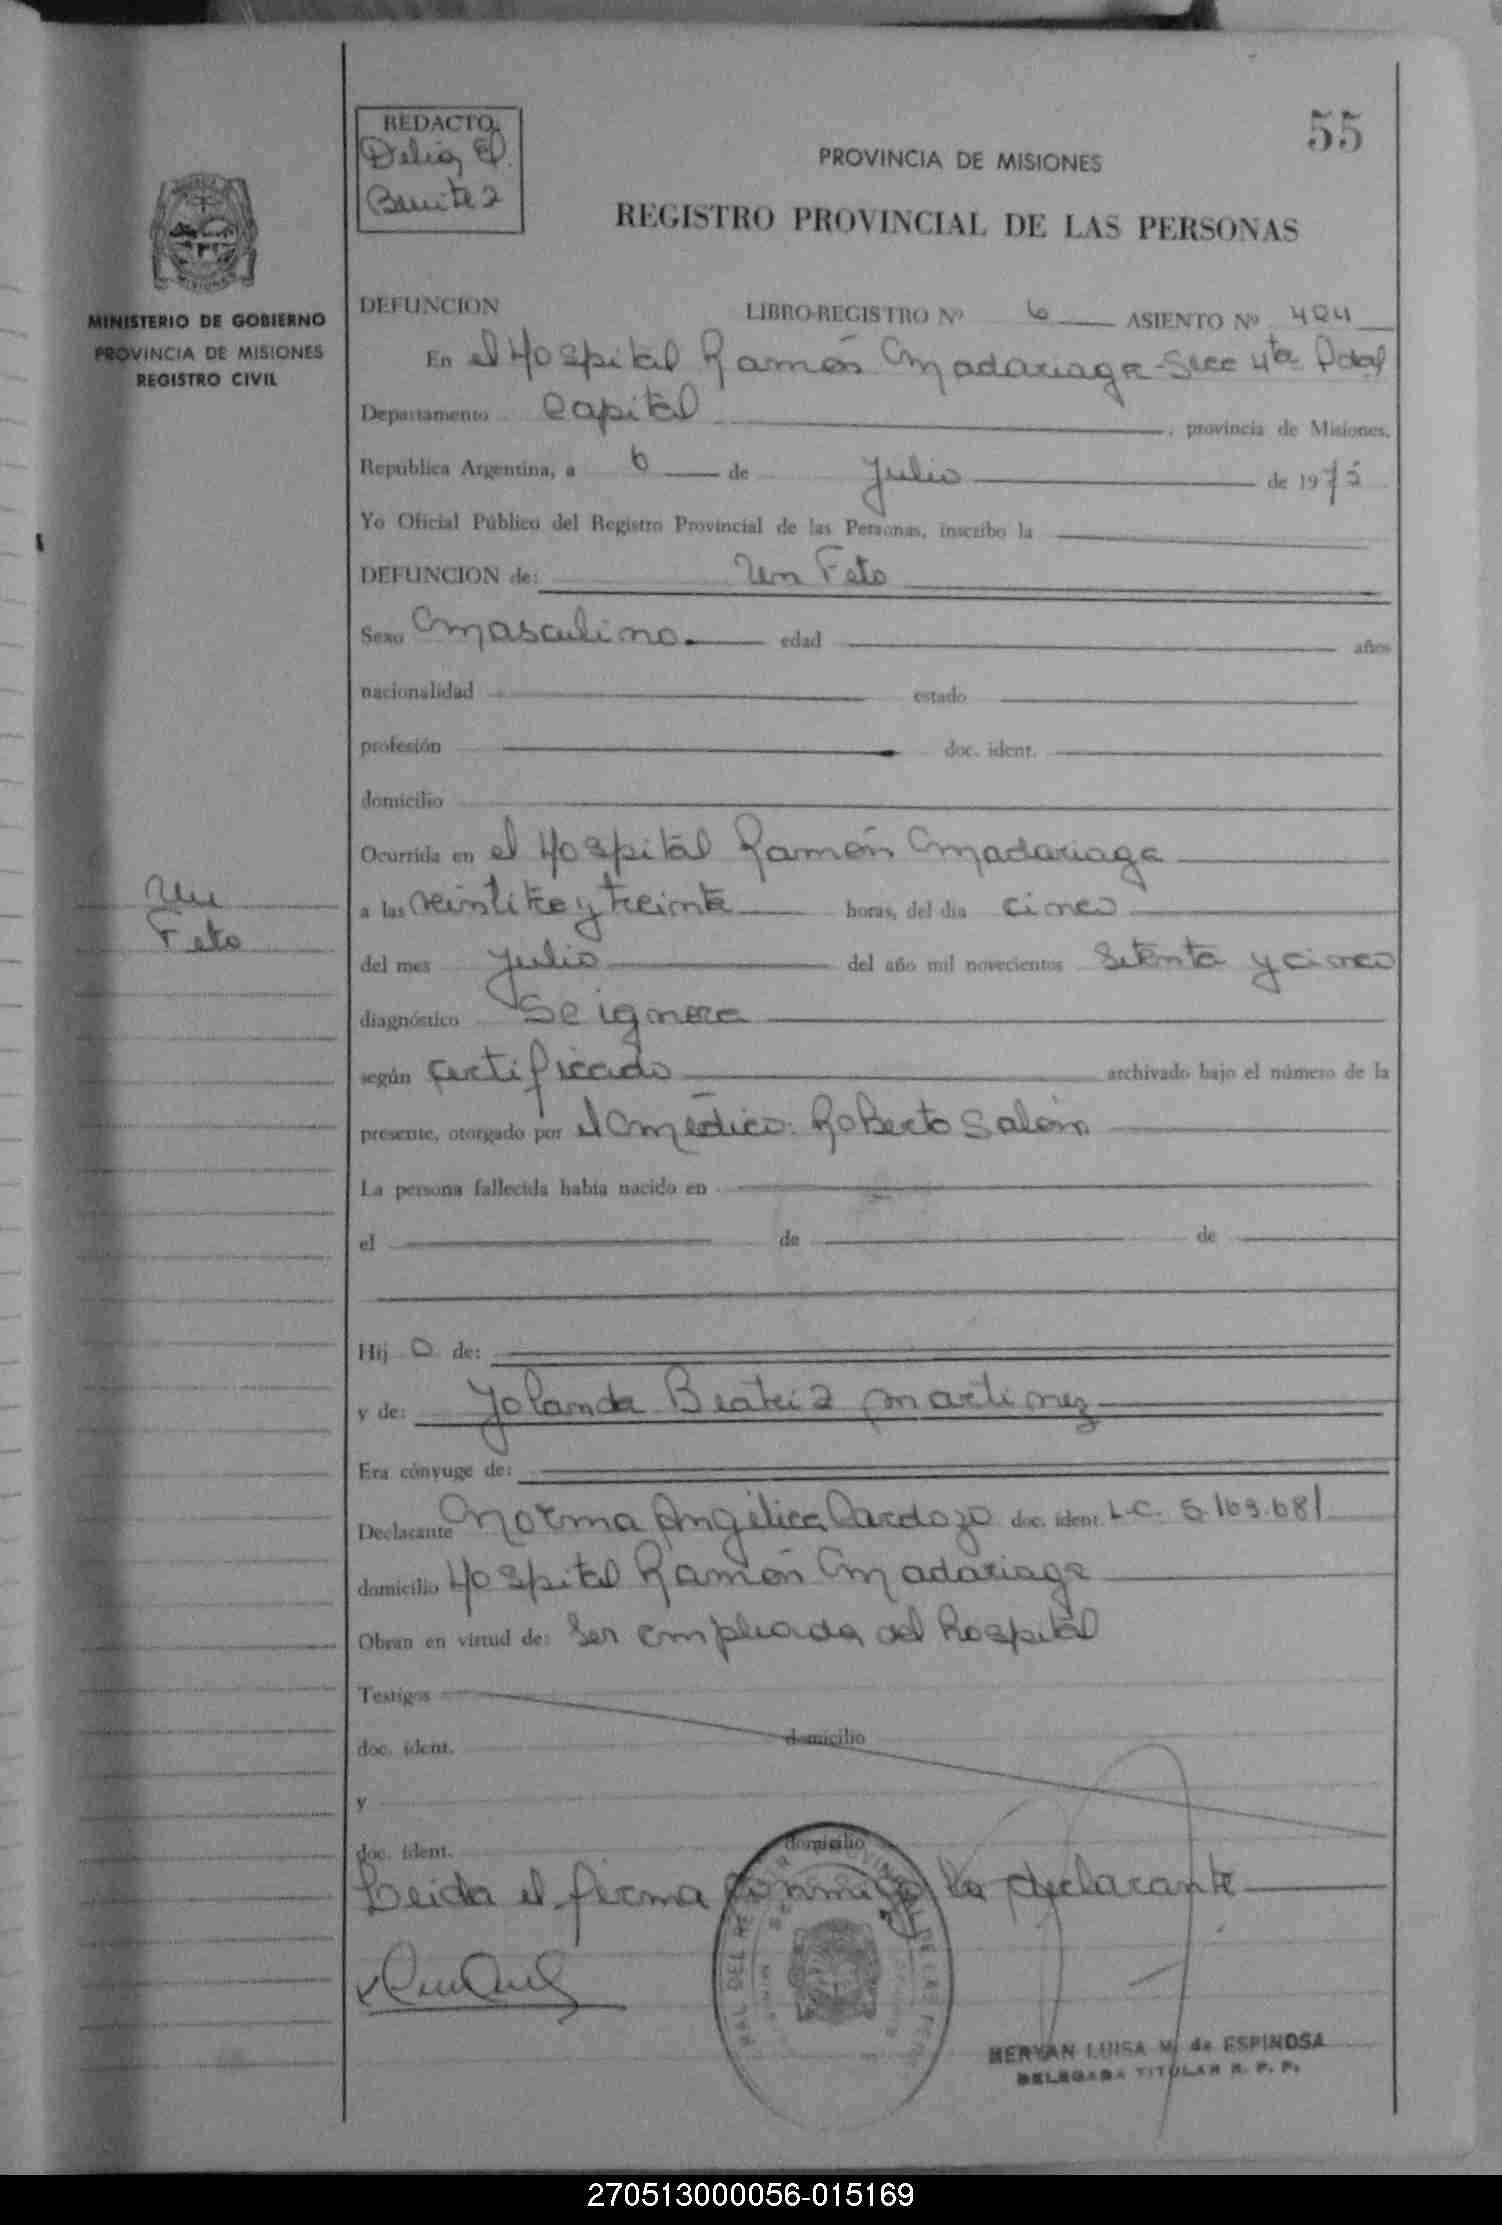 55
REDACTO
Delia E.
Benitez
PROVINCIA DE MISIONES
REGISTRO PROVINCIAL DE LAS PERSONAS
MINISTERIO DE GOBIERNO
PROVINCIA DE MISIONES
REGISTRO CIVIL
DEFUNCION LIBRO-REGISTRO Nº 6 ASIENTO Nº 404
En el Hospital Ramón Madariaga - Secc 4ta Pdas
Departamento Capital, provincia de Misiones,
República Argentina, a 6 de Julio de 1975
Yo Oficial Público del Registro Provincial de las Personas, inscribo la
DEFUNCION de: Un Feto
Sexo Masculino. edad años
nacionalidad estado
profesión doc. ident.
domicilio
Ocurrida en el Hospital Ramón Madariaga
Un
Feto
a las veintitre y treinta horas, del día cinco
del mes Julio del año mil novecientos Setenta y cinco
diagnóstico Se ignora
según certificado archivado bajo el número de la
presente, otorgado por el médico: Roberto Salón
La persona fallecida había nacido en
el de de
Hij o de:
y de: Yolanda Beatriz Martinez
Era cónyuge de:
Declarante Norma Angélica Cardozo doc. ident. L-C. 5.163.681
domicilio Hospital Ramón Madariaga
Obran en virtud de: Ser empleada del hospital
Testigos
doc. ident. domicilio
y
doc. ident. domicilio
Leida el firma conmigo la declarante
LUISA M. de ESPINOSA
DELEGADA TITULAR R. P. P.
270513000056-015169